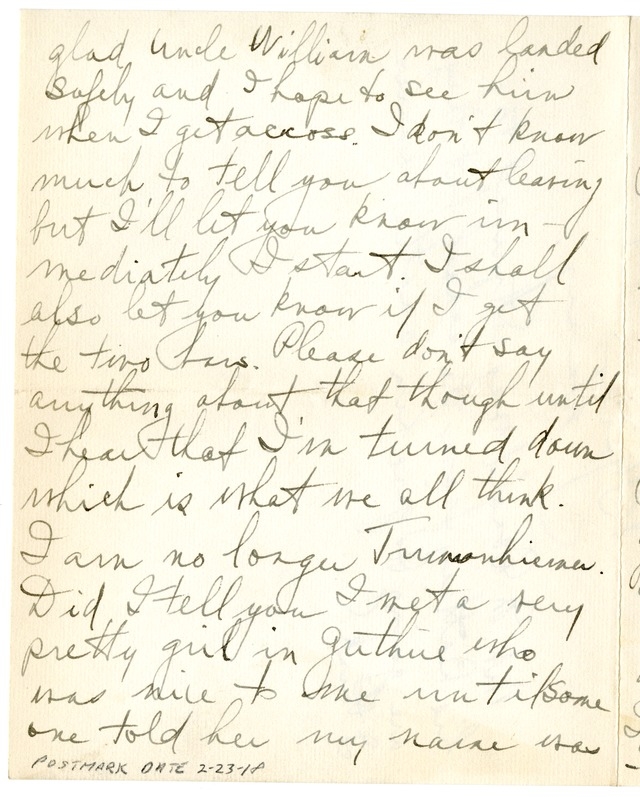 glad Uncle William was landed
safely and I hope to see him
when I get across. I don't know
much to tell you about leaving
but I'll let you know im-
mediately I start. I shall
also let you know if I get
the two bars. Please don't say
anything about that though until
I hear that I'm turned down
which is what we all think.
I am no longer Trumanheimer.
Did I tell you I met a very
pretty girl in Guthrie who
was nice to me until some
one told her my name was
POSTMARK DATE 2-23-18